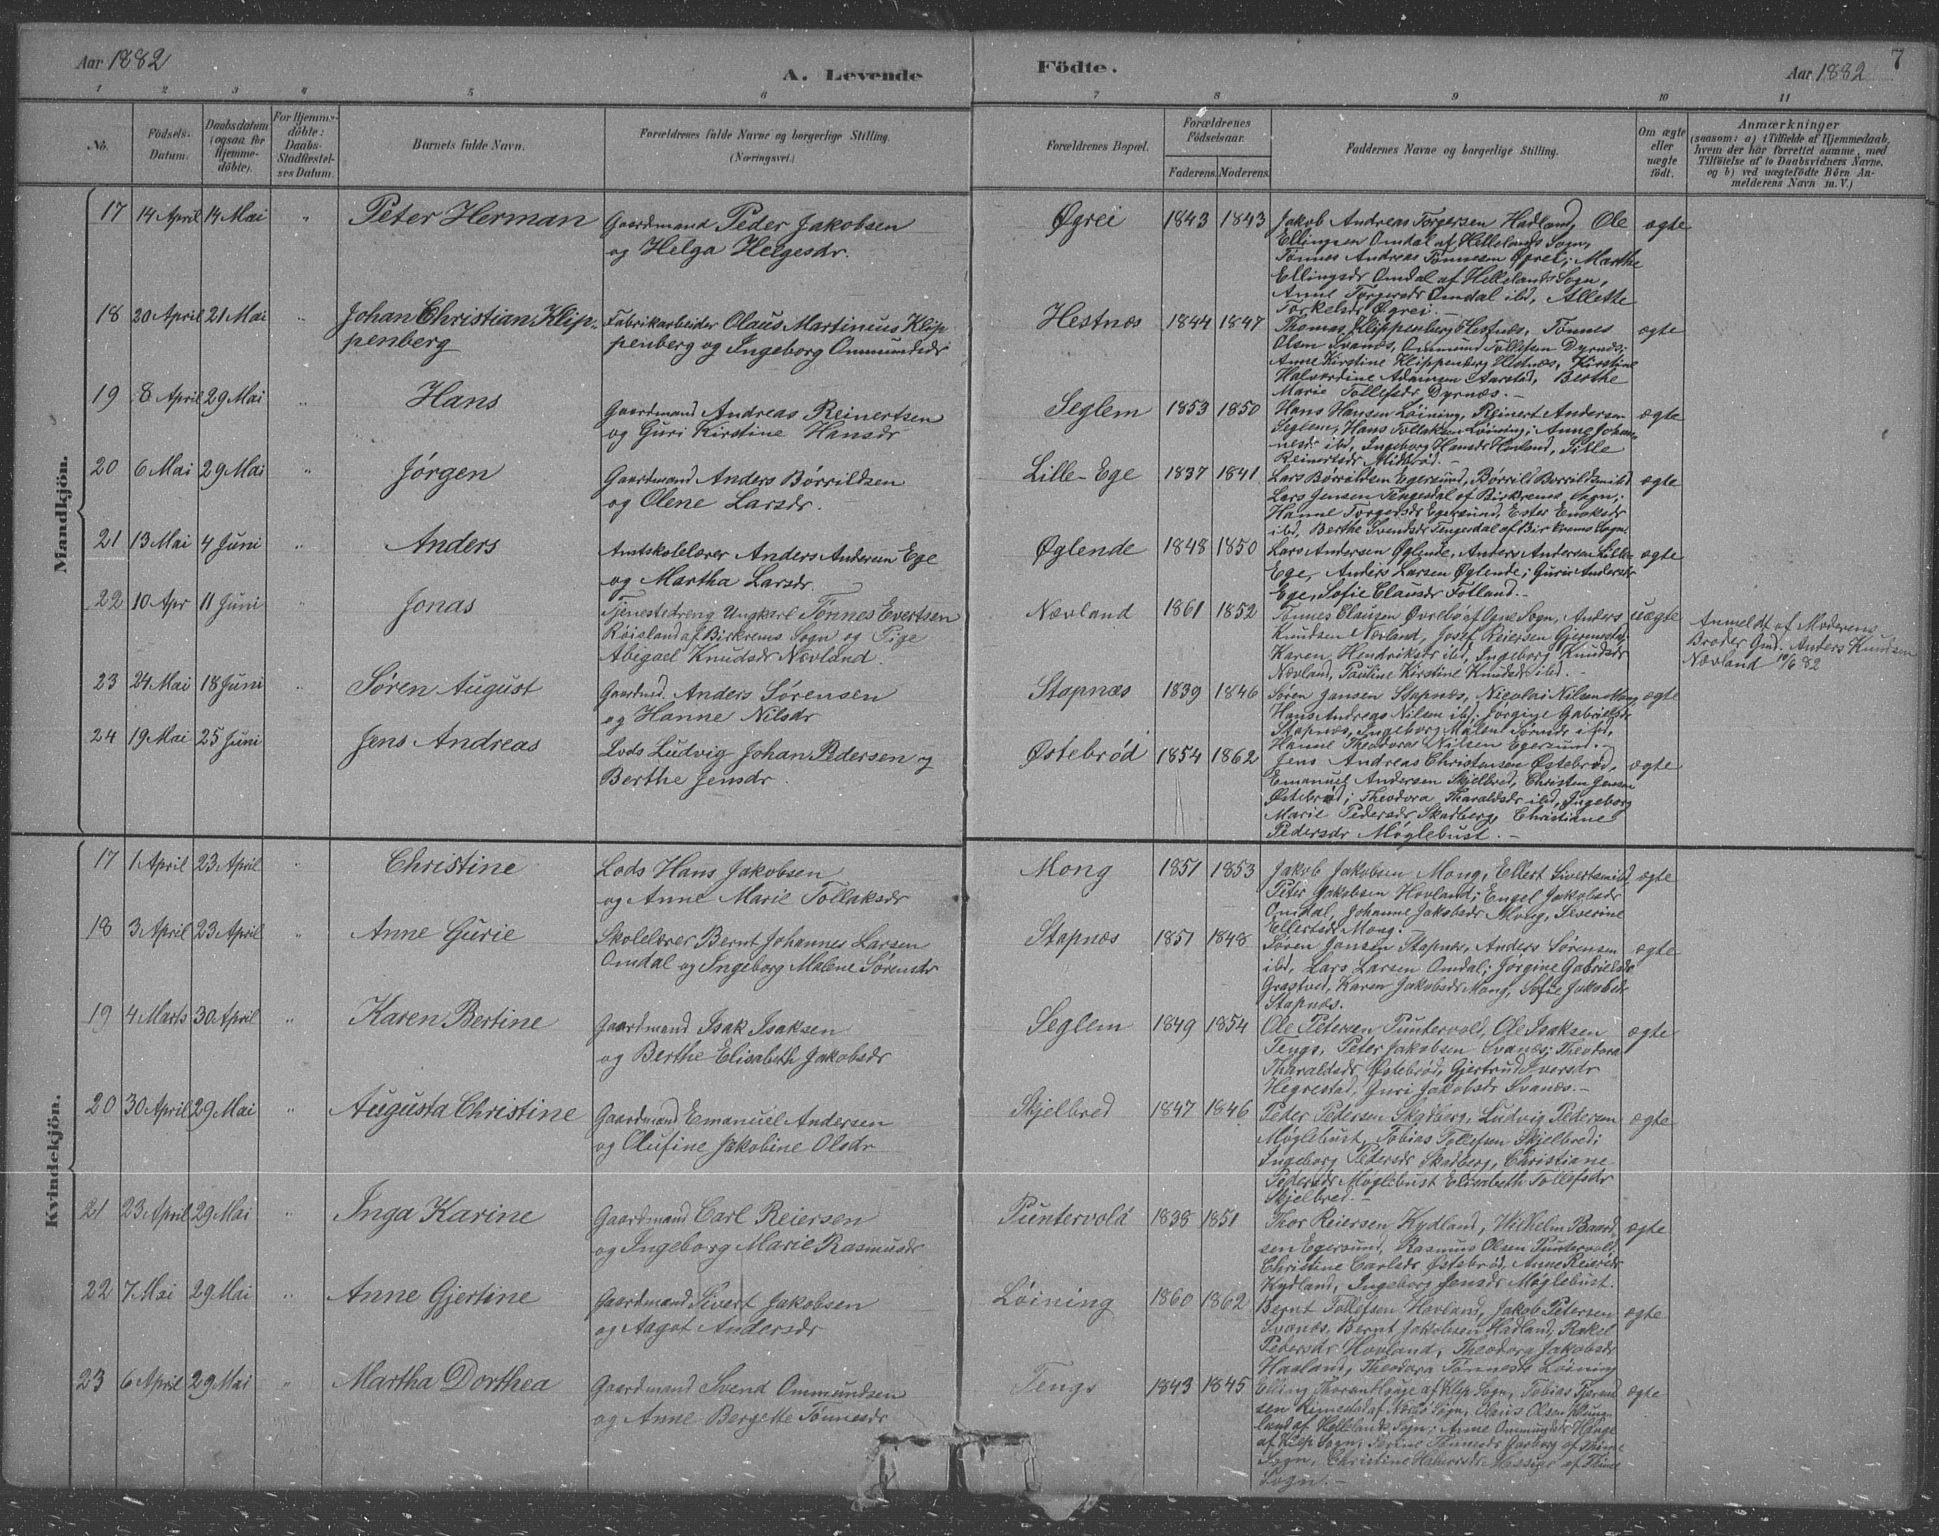 Aar 1882
A. Levende
Födte.
Aar 1882
7
1 2 3 4 5 6 7 8 9 10 11
No.
Födsels-Datum.
Daabsdatum (ogsaa for Hjemmedöbte).
For Hjemmedöbte: Daabs-Stadfæstelses Datum.
Barnets fulde Navn.
Forældrenes fulde Navne og borgerlige Stilling. (Næringsvei.)
Forældrenes Bopæl.
Forældrenes Födselsaar.
Faderens. Moderens.
Faddernes Navne og borgerlige Stilling.
Om ægte eller uægte födt.
Anmærkninger
(saasom: a) i Tilfælde af Hjemmedaab, hvem der har forrettet samme, med Tilföielse af to Daabsvidners Navne, og b) ved uægtefödte Börn Anmelderens Navn m. V.)
Mandkjön.
17 14 April 14 Mai " Peter Herman Gaardmand Peder Jakobsen
og Helga Helgesdr.
Øgrei 1843 1843 Jakob Andreas Torgersen Hadland, Ole
Ellingsen Omdal af Hellelands Sogn,
Tønnes Andreas Tønnesen Øgrei; Marthe
Ellingsdr Omdal af Hellelands Sogn,
Anne Torgersdr Omdal ibd, Allette
Torkelsdr Øgrei.
ægte
18 20 April 21 Mai " Johan Christian Klip-
penberg
Fabrikarbeider Olaus Martinius Klip
penberg og Ingeborg Ommundsdr
Hestnæs 1844 1847 Thomas Klippenberg Hestnæs, Tønnes
Olsen Svanæs, Ommund Tollefsen Dyrnæs;
Anne Kirstine Klippenberg Hestnæs, Kirstine
Halvordine Adamsen Aarstad, Berthe
Marie Tollefsdr Dyrnæs.
ægte
19 8 April 29 Mai " Hans Gaardmand Andreas Reinertsen
og Guri Kirstine Hansdr
Seglem 1853 1850 Hans Hansen Løining, Reinert Andersen
Seglem, Hans Tollaksen Løining; Anne Johan-
nesdr ibd, Ingeborg Hansdr Hovland, Sille
Reinertsdr Midbrød.
ægte
20 6 Mai 29 Mai " Jørgen Gaardmand Anders Børrildsen
og Olene Larsdr.
Lille-Ege 1837 1841 Lars Børrildsen Egersund, Børrild Børrildsen ibd
Lars Jensen Tengesdal af Birkrems Sogn;
Hanne Torgersdr Egersund, Ester Enoksdr
ibd, Berthe Svendsdr Tengesdal af Birkrems Sogn.
ægte
21 13 Mai 4 Juni " Anders Amtskolelærer Anders Andersen Ege
og Martha Larsdr.
Øglende 1848 1850 Lars Andersen Øglende, Anders Andersen Lille-
Ege, Anders Larsen Øglende; Gurie Andersdr
Ege, Sofie Clausdr Fotland.
ægte
22 10 Apr 11 Juni " Jonas Tjenestedreng Ungkarl Tønnes Evertsen
Røisland af Birkrems Sogn og Pige
Abigael Knudsdr Nævland.
Nævland 1861 1852 Tønnes Clausen Øvrebø af Ogne Sogn, Anders
Knudsen Nævland, Josef Reiersen Gjermestad;
Karen Hendriksdr ibd, Ingeborg Knudsdr
Nævland, Pauline Kirstine Knudsdr ibd.
uægte Anmeldt af Moderens
Broder Gmd. Anders Knudsen
Nævland 10/6 82
23 24 Mai 18 Juni " Søren August Gaardmd. Anders Sørensen
og Hanne Nilsdr
Stapnæs 1839 1846 Søren Jansen Stapnæs, Nicolai Nilsen Mong,
Hans Andreas Nilsen ibd; Jørgine Gabrielsdr
Stapnæs, Ingeborg Malene Sørnsdr ibd,
Hanne Theodora Nilsen Egersund.
ægte
24 19 Mai 25 Juni Jens Andreas Lods Ludvig Johan Pedersen og
Berthe Jensdr.
Østebrød 1854 1862 Jens Andreas Christensen Østebrød,
Emanuel Andersen Skjelbred, Christen Jensen
Østebrød; Theodora Tharaldsdr ibd, Ingeborg
Marie Pedersdr Skadberg, Christiane
Pedersdr Møglebust.
ægte
Kvindekjön.
17 1 April 23 April " Christine Lods Hans Jakobsen
og Anne Marie Tollaksdr
Mong 1851 1853 Jakob Jakobsen Mong, Ellert Sivertsen ibd,
Peter Jakobsen Hovland; Engel Jakobsdr
Omdal, Johanne Jakobsdr Mong, Severine
Ellertsdr Mong.
ægte
18 3 April 23 April " Anne Gurie Skolelærer Bernt Johannes Larsen
Omdal og Ingeborg Malene Sørensdr
Stapnæs 1851 1848 Søren Jansen Stapnæs, Anders Sørensen
ibd, Lars Larsen Omdal; Jørgine Gabrielsdr
Grastved, Karen Jakobsdr Mong, Sofie Jakobsdr
Stapnæs.
ægte
19 4 Marts 30 April " Karen Bertine Gaardmand Isak Isaksen
og Berthe Elisabeth Jakobsdr
Seglem 1849 1854 Ole Petersen Puntervold, Ole Isaksen
Tengs, Peter Jakobsen Svanæs; Theodora
Tharaldsdr Østebrød, Gjertrud Iversdr
Hegrestad, Guri Jakobsdr Svanæs.
ægte
20 30 April 29 Mai " Augusta Christine Gaardmand Emanuel Andersen
og Olufine Jakobine Olsdr
Skjelbred 1847 1846 Peder Pedersen Skadberg, Ludvig Pedersen
Møglebust, Tobias Tollefsen Skjelbred;
Ingeborg Pedersdr Skadberg, Christiane
Pedersdr Møglebust Elisabeth Tollefsdr
Skjelbred.
ægte
21 23 April 29 Mai " Inga Karine Gaardmand Carl Reiersen
og Ingeborg Marie Rasmusdr
Puntervold 1838 1851 Thor Reiersen Kydland, Wilhelm Baard-
sen Egersund, Rasmus Olsen Puntervold;
Christine Carlsdr Østebrød, Anne Reiersdr
Kydland, Ingeborg Jensdr Møglebust.
ægte
22 7 Mai 29 Mai " Anne Gjertine Gaardmand Sivert Jakobsen
og Aagot Andersdr
Løining 1860 1862 Bernt Tollefsen Hovland, Jakob Petersen
Svanæs, Bernt Jakobsen Hadland; Rakel
Pedersdr Hovland, Theodora Jakobsdr
Haaland, Theodora Tønnesdr Løining
ægte
23 6 April 29 Mai " Martha Dorthea Gaardmand Svend Ommundsen
og Anne Bergette Tønnesdr
Tengs 1843 1845 Elling Thorsen Hauge af Klep Sogn, Tobias
sen af Sogn, Olaus Olsen
land af Hellelands Sogn; Anne Ommundsdr Hauge
af Klep Sogn, Tønnesdr Garborg af Thime
Sogn, Christine af Thime
Sogn.
ægte